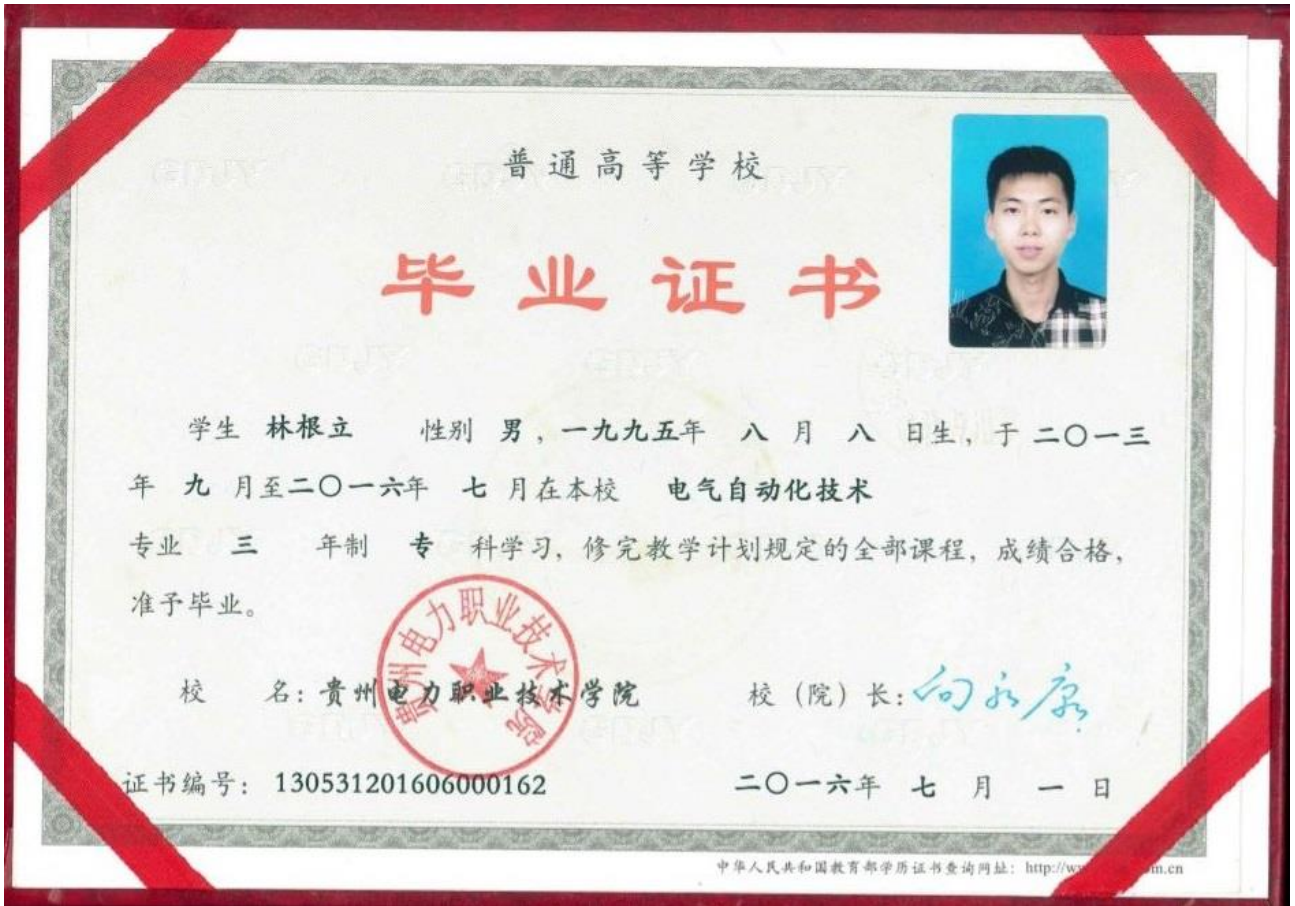 普通高等学校
毕业证书
学生 林根立 性别 男，一九九五年 八 月 八 日生，于 二〇一三
年 九 月至二〇一六年 七 月在本校 电气自动化技术
专业 三 年制 专 科学习，修完教学计划规定的全部课程，成绩合格，
准予毕业。
贵州电力职业技术学院
校 名：贵州电力职业技术学院 校（院）长：向永康
证书编号：130531201606000162 二〇一六年 七 月 一 日
中华人民共和国教育部学历证书查询网址：http://